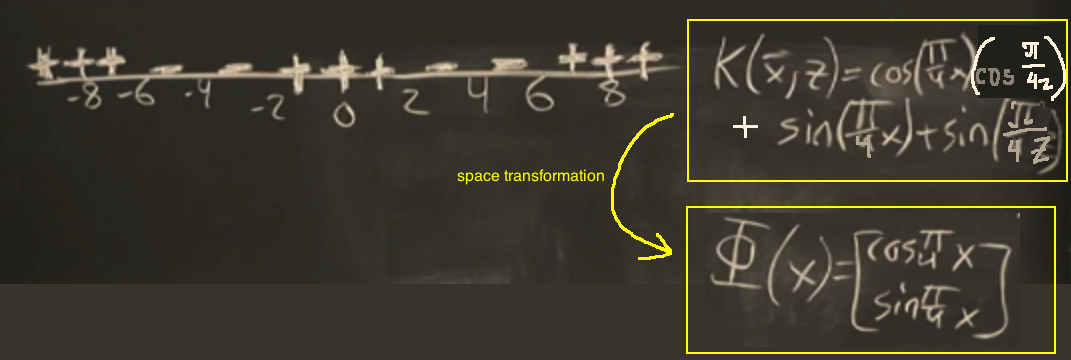 + + + - - + + + - - + + +
-8 -6 -4 -2 0 2 4 6 8
K(x⃗,z)=cos(π/4 x)(cos π/4z)
+ sin(π/4 x)+sin(π/4 z)
space transformation
Φ(x)=[cos π/4 x
sin π/4 x]